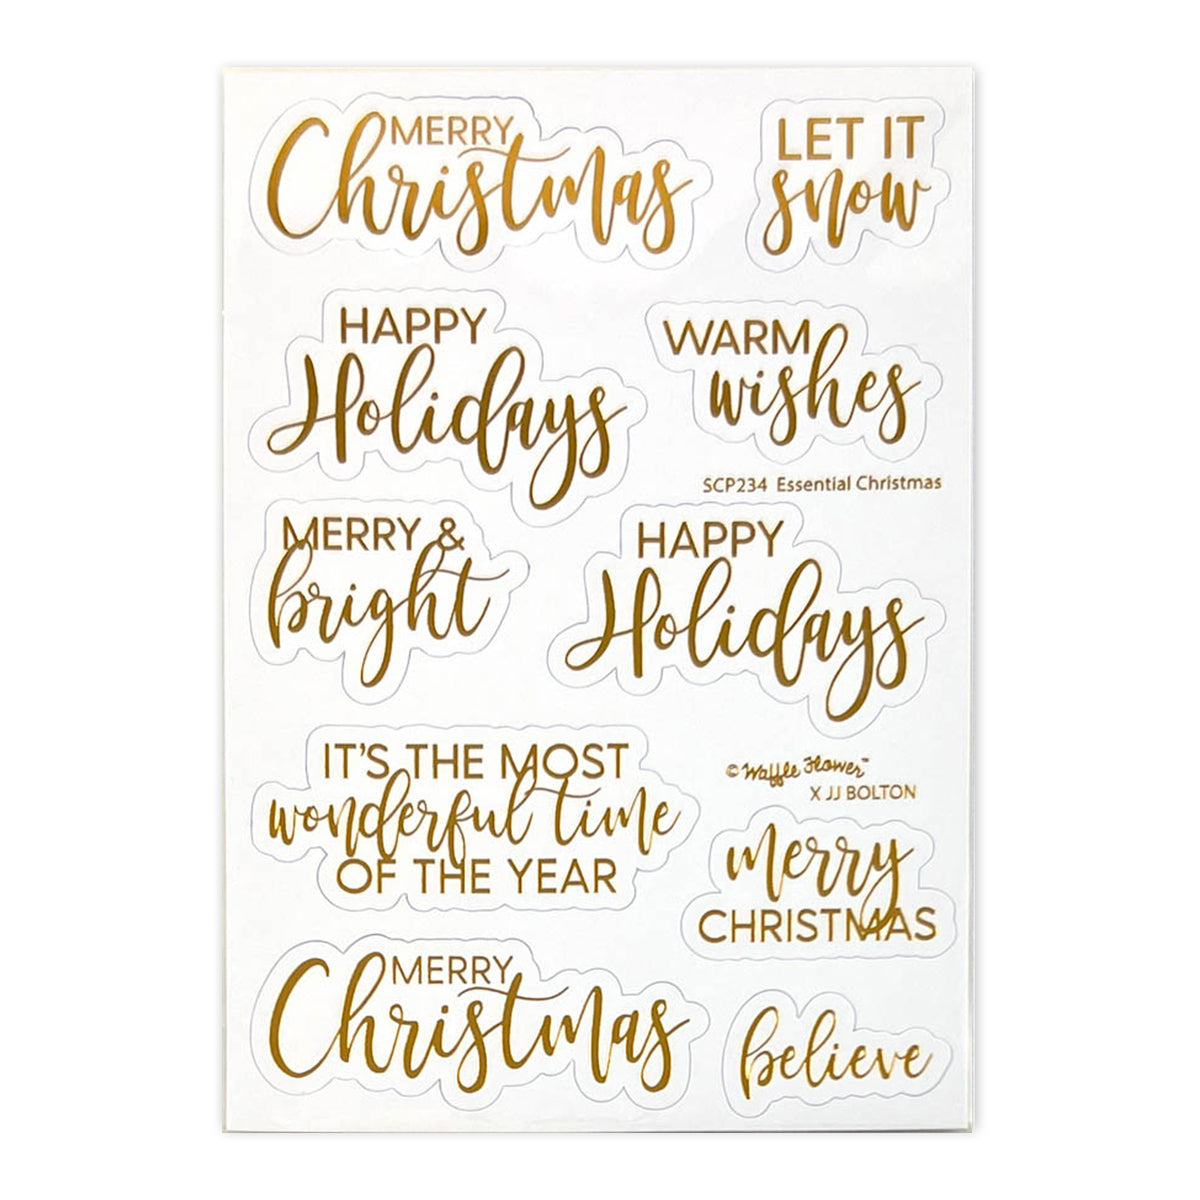 MERRY
Christmas
LET IT
snow
HAPPY
Holidays
WARM
wishes
SCP234 Essential Christmas
MERRY &
bright
HAPPY
Holidays
IT'S THE MOST
wonderful time
OF THE YEAR
© Waffle Flower™
X JJ BOLTON
merry
CHRISTMAS
MERRY
Christmas
believe